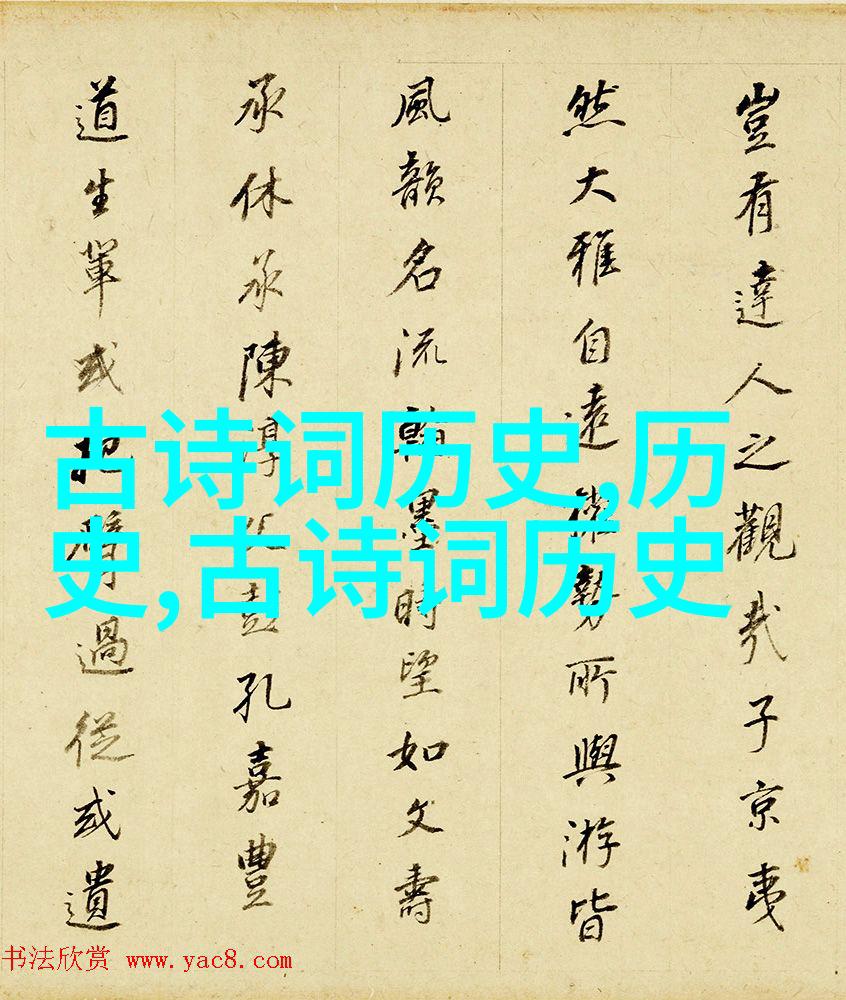 豈有達人之觀哉子京夷
然大雅自遠勢所與游皆
風韻名流翰墨時望如文壽
承休承陳淳父彭孔嘉豐
道生輩或把臂過從或遺
古诗词历史,历
史,古诗词历史
书法欣赏 www.yac8.com